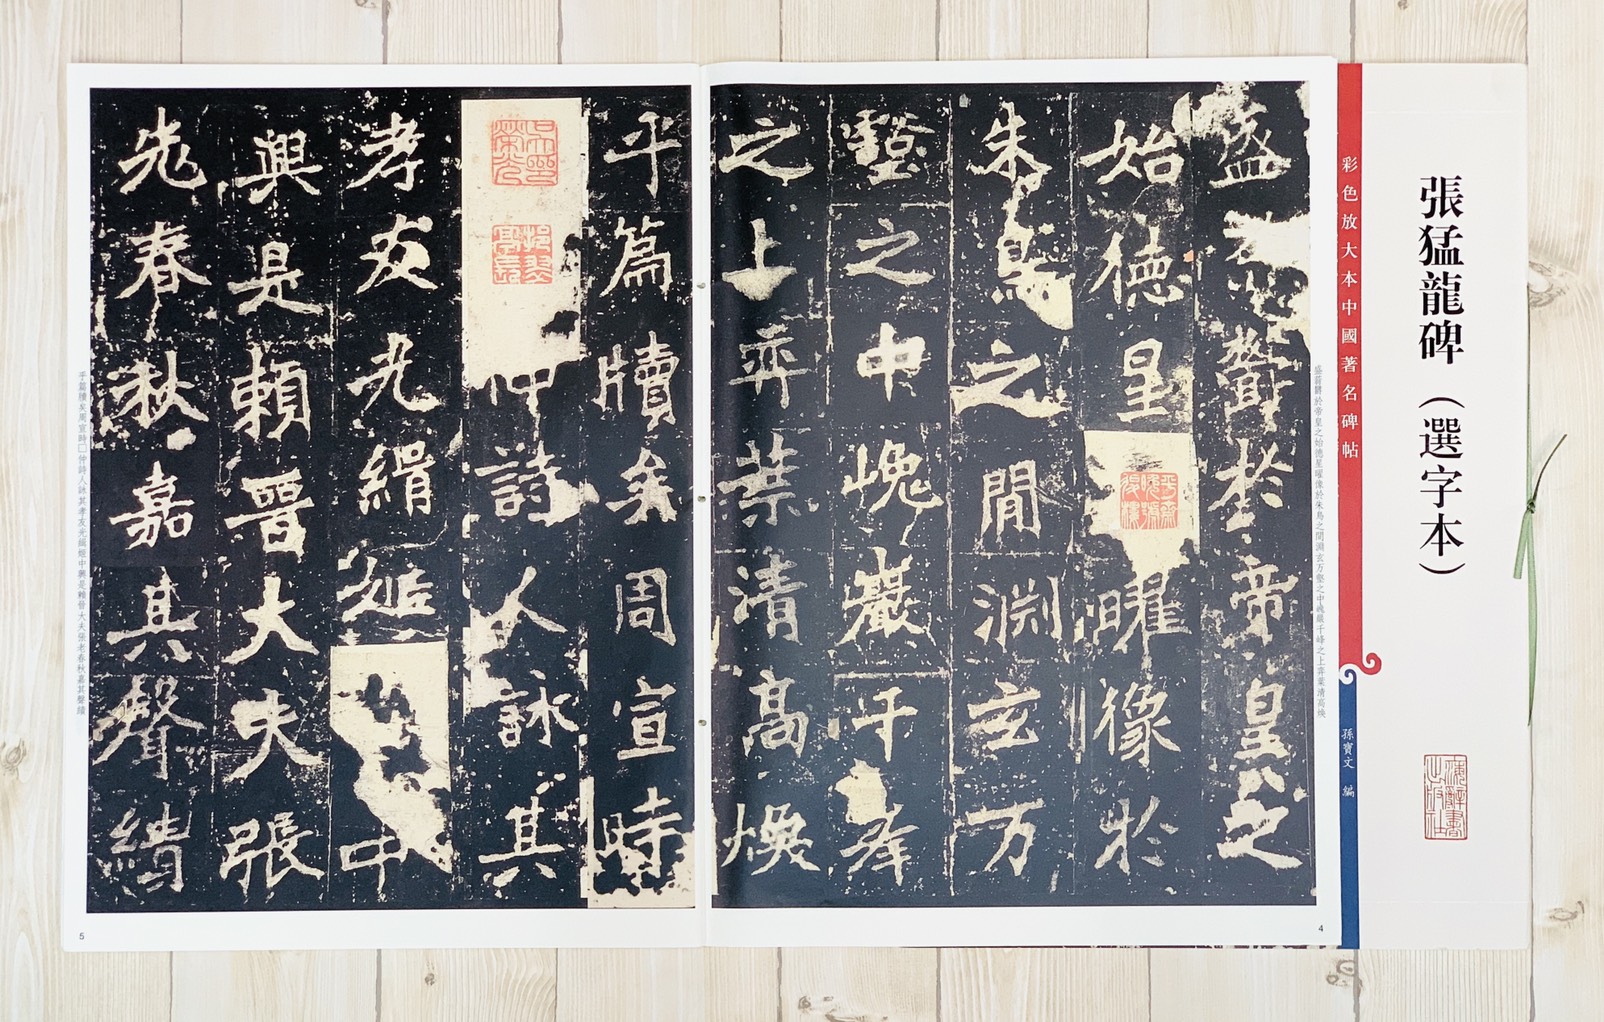 張猛龍碑（選字本）
上海辭書出版社
彩色放大本中國著名碑帖
孫寶文 編
盛蔚鬱於帝皇之始德星曜像於朱鳥之間淵玄万壑之中巉巖千峰之上弈葉清高煥
盛蔚鬱於帝皇之
始德星曜像於
朱鳥之間淵玄万
壑之中巉巖千峯
之上弈葉清高煥
4
乎篇牘矣周宣時
仲詩人詠其
孝友光緝姬中
興是賴晉大夫張
老春秋嘉其聲績
乎篇牘矣周宣時□仲詩人詠其孝友光緝姬中興是賴晉大夫張老春秋嘉其聲績
5